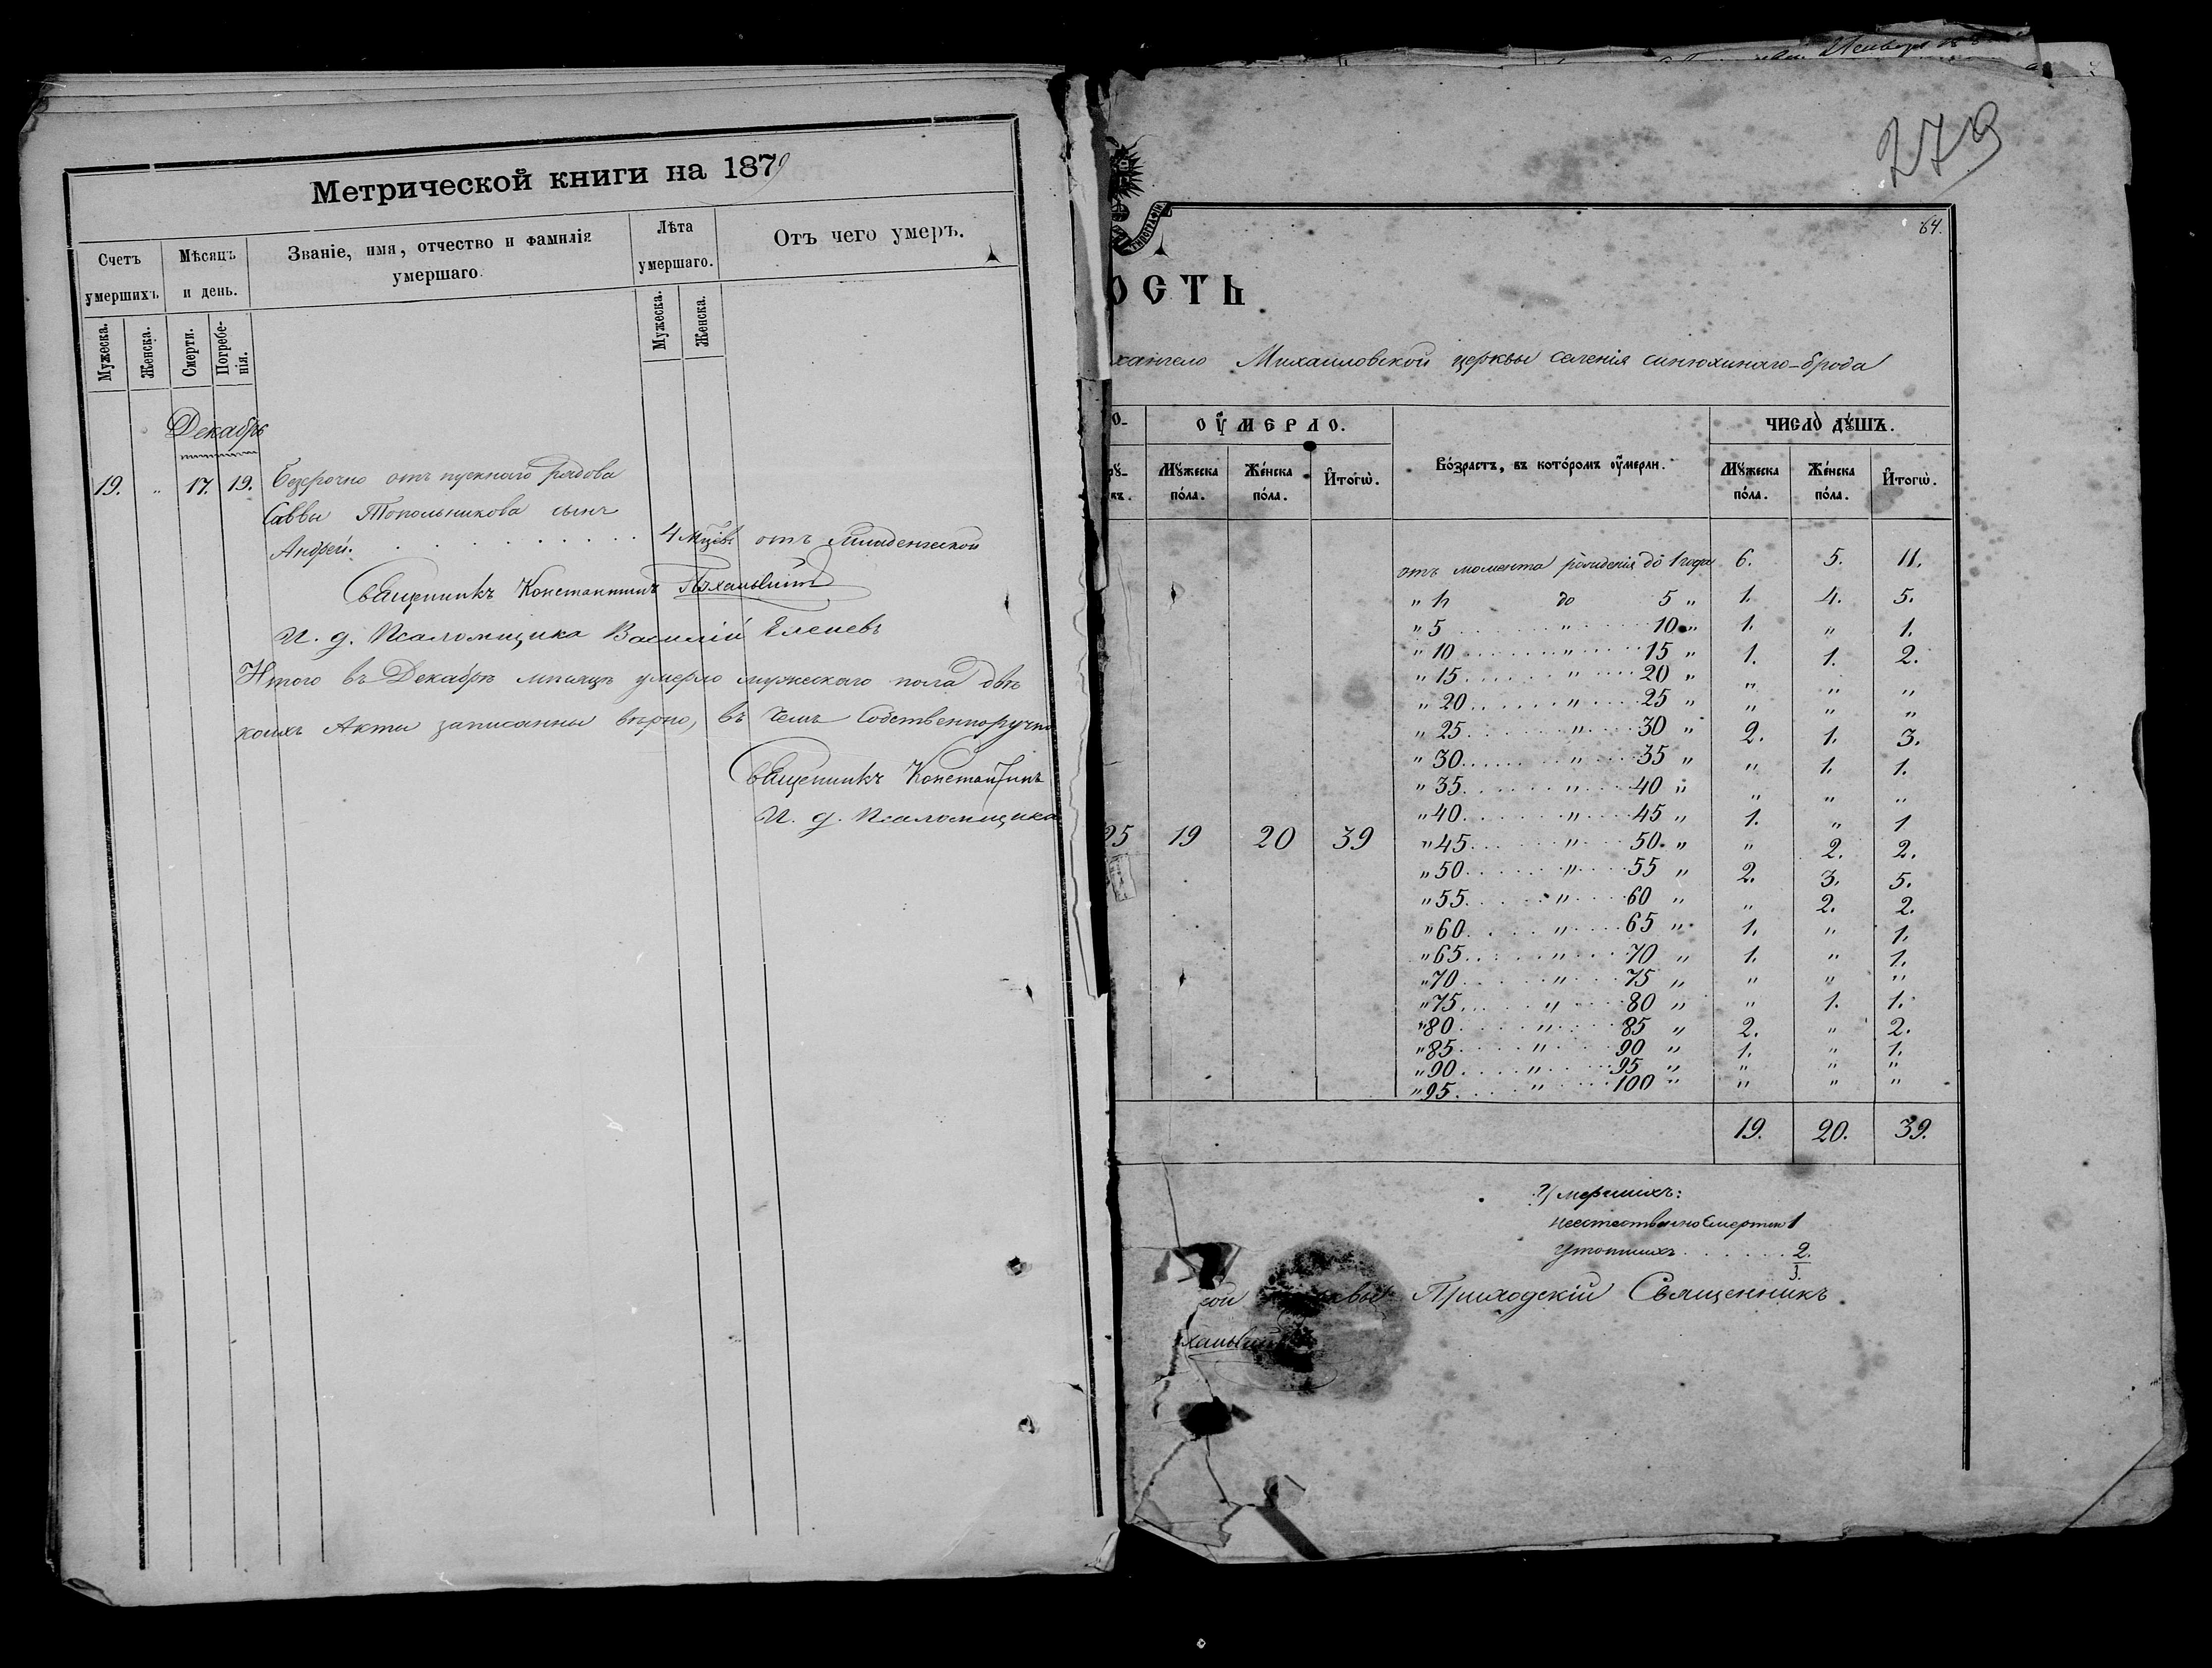 Метрической книги на 1879
Счетъ умершихъ
Мѣсяцъ и день.
Званіе, имя, отчество и фамилія умершаго.
Лѣта умершаго.
Отъ чего умеръ.
Мужеска.
Женска.
Смерти.
Погребенія.
Мужеска.
Женска.
Декабрь
19. " 17. 19. Безсрочно отпускного рядова
Саввы Топольникова сынъ
Андрей. 4 мцѣв. отъ младенческой
Священникъ Константинъ
И. д. Псаломщика Василій Еленевъ
Итого въ Декабрѣ мѣсяцѣ умерло мужескаго пола двѣ
коихъ Акты записанны вѣрно, въ чемъ Собственноручно
Священникъ Константинъ
И. д. Псаломщика
279
64.
ОСТЬ
хангело Михаиловской церквы селенія синюхинаго-брода
ОУМЕРЛО.
Мужеска пола.
Женска пола.
Итогѡ.
Возрастъ, въ которомъ оумерли.
ЧИСЛО ДУШЪ.
Мужеска пола.
Женска пола.
Итогѡ.
отъ момента рожденія до 1 года 6. 5. 11.
" 1 до 5 " 1. 4. 5.
" 5 " 10 " 1. " 1.
" 10 " 15 " 1. 1. 2.
" 15 " 20 " " " "
" 20 " 25 " " " "
" 25 " 30 " 2. 1. 3.
" 30 " 35 " " 1. 1.
" 35 " 40 " " " "
" 40 " 45 " 1. " 1
25 19 20 39 " 45 " 50 " " 2. 2.
" 50 " 55 " 2. 3. 5.
" 55 " 60 " " 2. 2.
" 60 " 65 " 1. " 1.
" 65 " 70 " 1. " 1.
" 70 " 75 " " " "
" 75 " 80 " " 1. 1.
" 80 " 85 " 2. " 2.
" 85 " 90 " 1. " 1.
" 90 " 95 " " " "
" 95 " 100 " " " "
19. 20. 39.
Умершихъ:
неестественно смертью 1
Утопшихъ 2.
3.
Приходскій Священникъ